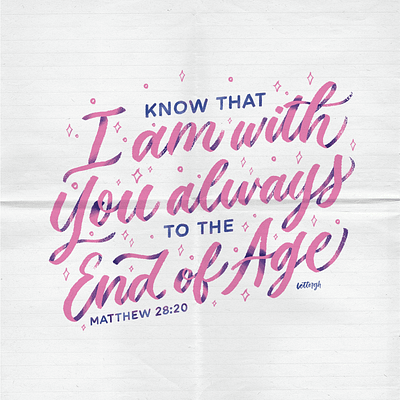 KNOW THAT
I am with
You always
TO THE
End of Age
MATTHEW 28:20